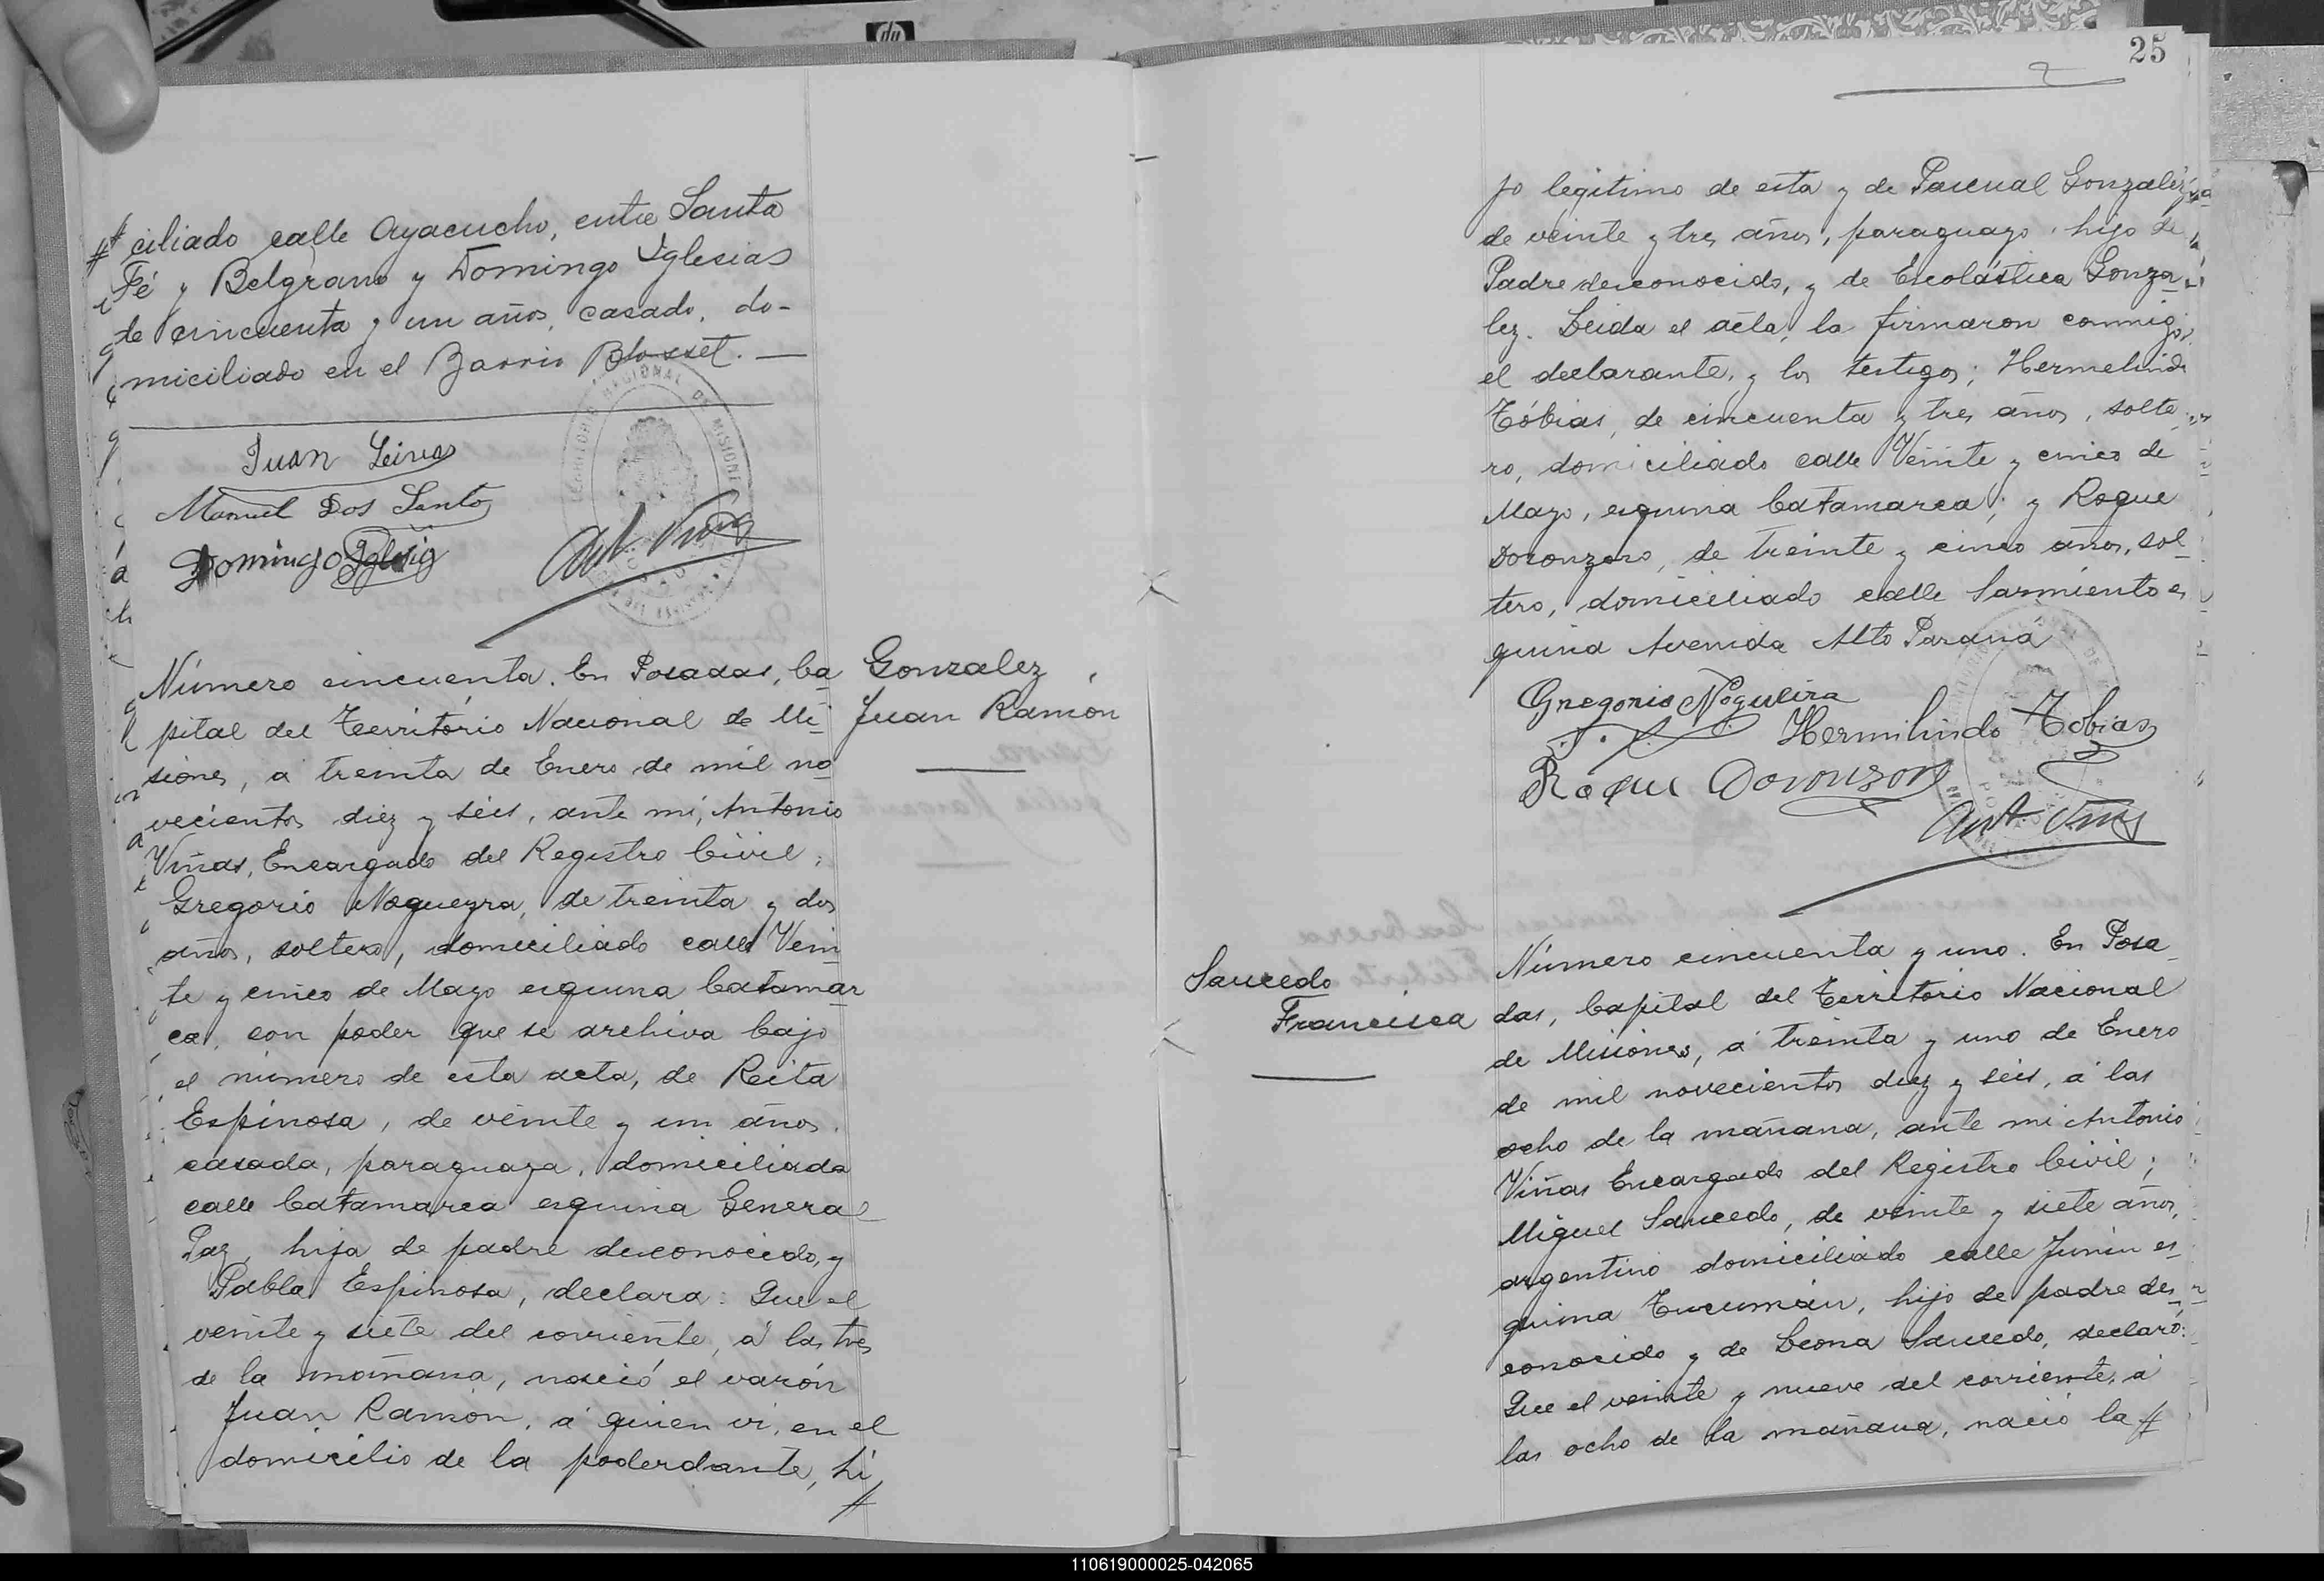 # ciliado calle Ayacucho, entre Santa
Fé y Belgrano y Domingo Yglesias
de cincuenta y un años, casado, do-
miciliado en el Barrio Blosset. —
TERRITORIO NACIONAL DE MISIONES
Juan Leiva
Manuel Dos Santos
Domingo Yglesias
Ant. Viñas
Gonzalez
Juan Ramón
Número cincuenta. En Posadas, Ca
pital del Territorio Nacional de Mi-
siones, a treinta de Enero de mil no
vecientos diez y séis, ante mí, Antonio
Viñas, Encargado del Registro Civil;
Gregorio Nogueyra, de treinta y dos
años, soltero, domiciliado calle Vein
te y cinco de Mayo esquina Catamar
ca, con poder que se archiva bajo
el número de esta acta, de Reita
Espinosa, de veinte y un años,
casada, paraguaya, domiciliada
calle Catamarca esquina General
Paz, hija de padre desconocido, y
Pabla Espinosa, declara: Que el
veinte y siete del corriente, á las tres
de la mañana, nació el varón
Juan Ramón, á quien vi, en el
domicilio de la poderdante, hi
#
25
2
jo legitimo de esta y de Pascual Gonzalez,
de veinte y tres años, paraguayo, hijo de
Padre desconocido, y de Escolástica Gonza
lez. Leida el acta, la firmaron conmigo,
el declarante, y los testigos; Hermelindo
Tóbias, de cincuenta y tres años, solte
ro, domiciliado calle Veinte y cinco de
Mayo, esquina Catamarca; y Roque
Doronzoro, de treinte y cinco años, sol-
tero, domiciliado calle Sarmiento es
quina Avenida Alto Paraná
Gregorio Nogueira
Hermilindo Tobias
Roque Doronzoro
Ant. Viñas
Saucedo
Francisca
Número cincuenta y uno. En Posa
das, Capital del Territorio Nacional
de Misiones, á treinta y uno de Enero
de mil novecientos diez y séis, á las
ocho de la mañana, ante mi Antonio
Viñas Encargado del Registro Civil;
Miguel Saucedo, de veinte y siete años,
argentino domiciliado calle Junin es-
quina Tucumán, hijo de padre des-
conocido y de Leona Saucedo, declaró:
Que el veinte y nueve del corriente, á
las ocho de la mañana, nació la #
110619000025-042065